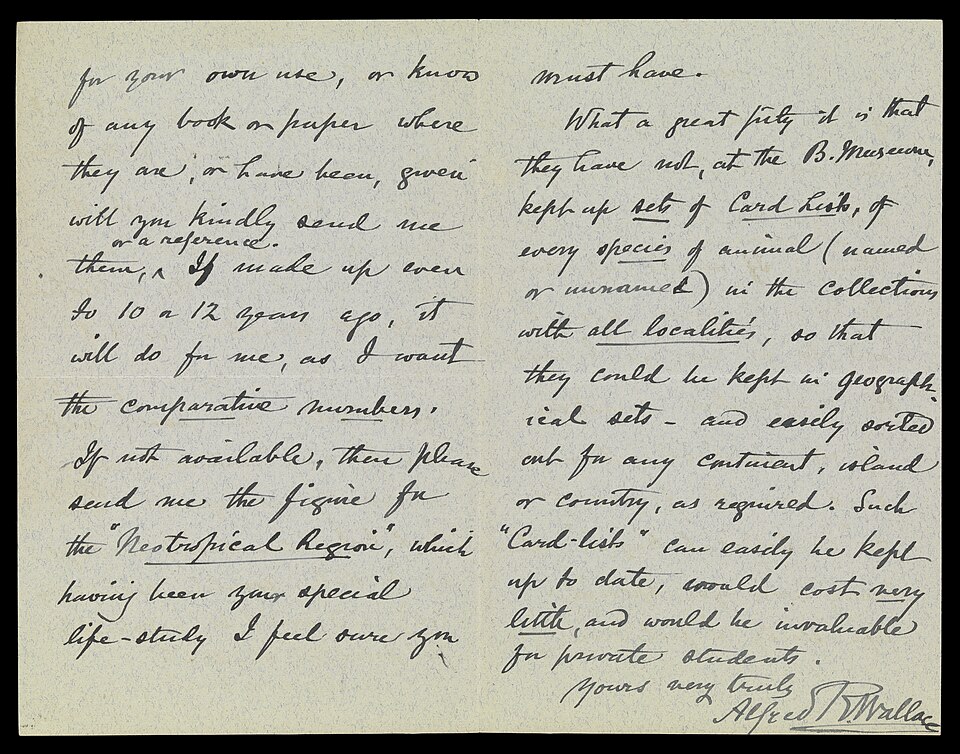 for your own use, or know
of any book or paper where
they are, or have been, given
will you kindly send me
or a reference.
them, ^ If made up even
to 10 or 12 years ago, it
will do for me, as I want
the comparative numbers.
If not available, then please
send me the figure for
the "Neotropical Region", which
having been your special
life-study I feel sure you
must have.
What a great pity it is that
they have not, at the B. Museum,
kept up sets of Card Lists, of
every species of animal (named
or unnamed) in the collections
with all localities, so that
they could be kept in geograph-
ical sets - and easily sorted
out for any continent, island
or country, as required. Such
"Card-lists" can easily be kept
up to date, would cost very
little, and would be invaluable
for private students.
Yours very truly
Alfred R. Wallace